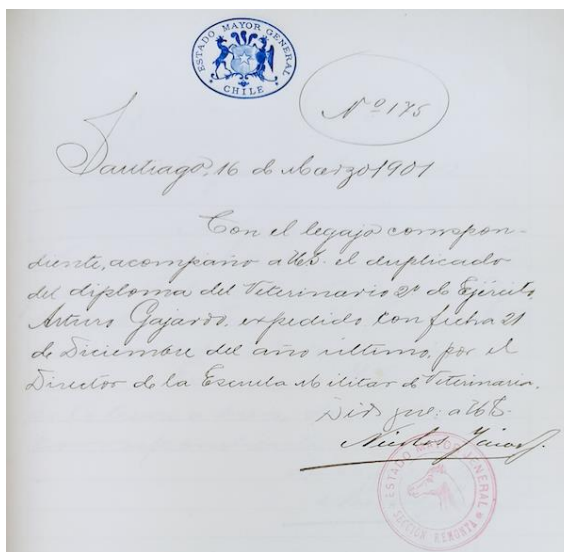 ESTADO MAYOR GENERAL
CHILE
Nº 175
Santiago, 16 de Marzo 1901
Con el legajo correspon-
diente, acompaño a US. el duplicado
del diploma del Veterinario 2º de Ejército,
Arturo Gajardo, expedido con fecha 21
de Diciembre del año último, por el
Director de la Escuela Militar de Veterinaria.
Dios gue: a US.
ESTADO MAYOR JENERAL
SECCION REMONTA